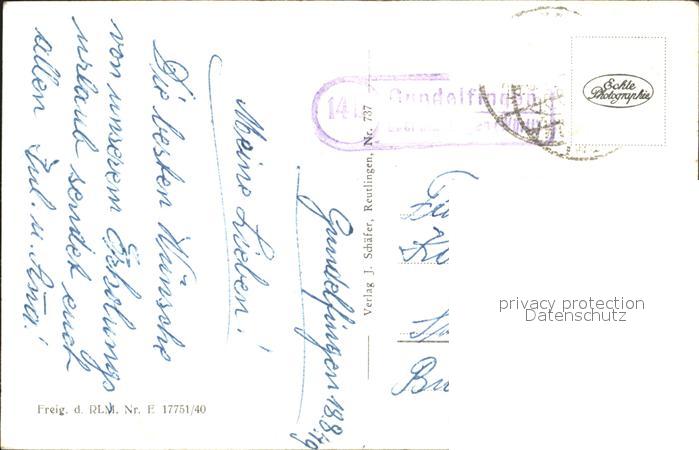 Gundelfingen 18.8.49
Meine Lieben!
Die besten Wünsche
von unserem Erholungs-
urlaub sendet euch
allen Jul. u. Anna!
Freig. d. RLM. Nr. E 17751/40
Verlag J. Schäfer, Reutlingen, Nr. 737
14b
Gundelfingen
über
Echte
Photographie
privacy protection
Datenschutz